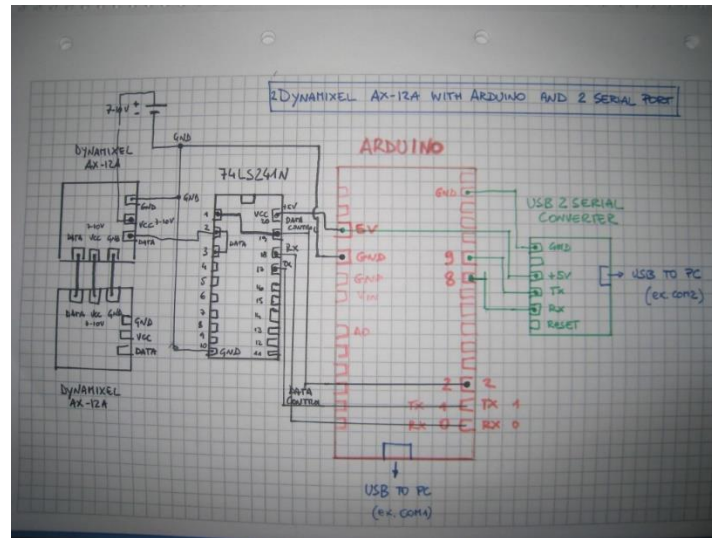 2 DYNAMIXEL AX-12A WITH ARDUINO AND 2 SERIAL PORT
7-10V + -
GND
DYNAMIXEL
AX-12A
GND
VCC 7-10V
DATA
GND
7-10V
DATA VCC GND
DATA VCC GND
7-10V
GND
VCC
DATA
DYNAMIXEL
AX-12A
74LS241N
1
2
3
4
5
6
7
8
9
10
GND
DATA
VCC
20
+5V
DATA
CONTROL
19
18
RX
17
TX
16
15
14
13
12
11
DATA
CONTROL
ARDUINO
GND
5V
GND
GND
VIN
A0
9
8
2 2
TX 1 TX 1
RX 0 RX 0
USB TO PC
(ex. COM1)
USB 2 SERIAL
CONVERTER
GND
+5V
TX
RX
RESET
USB TO PC
(ex. COM2)